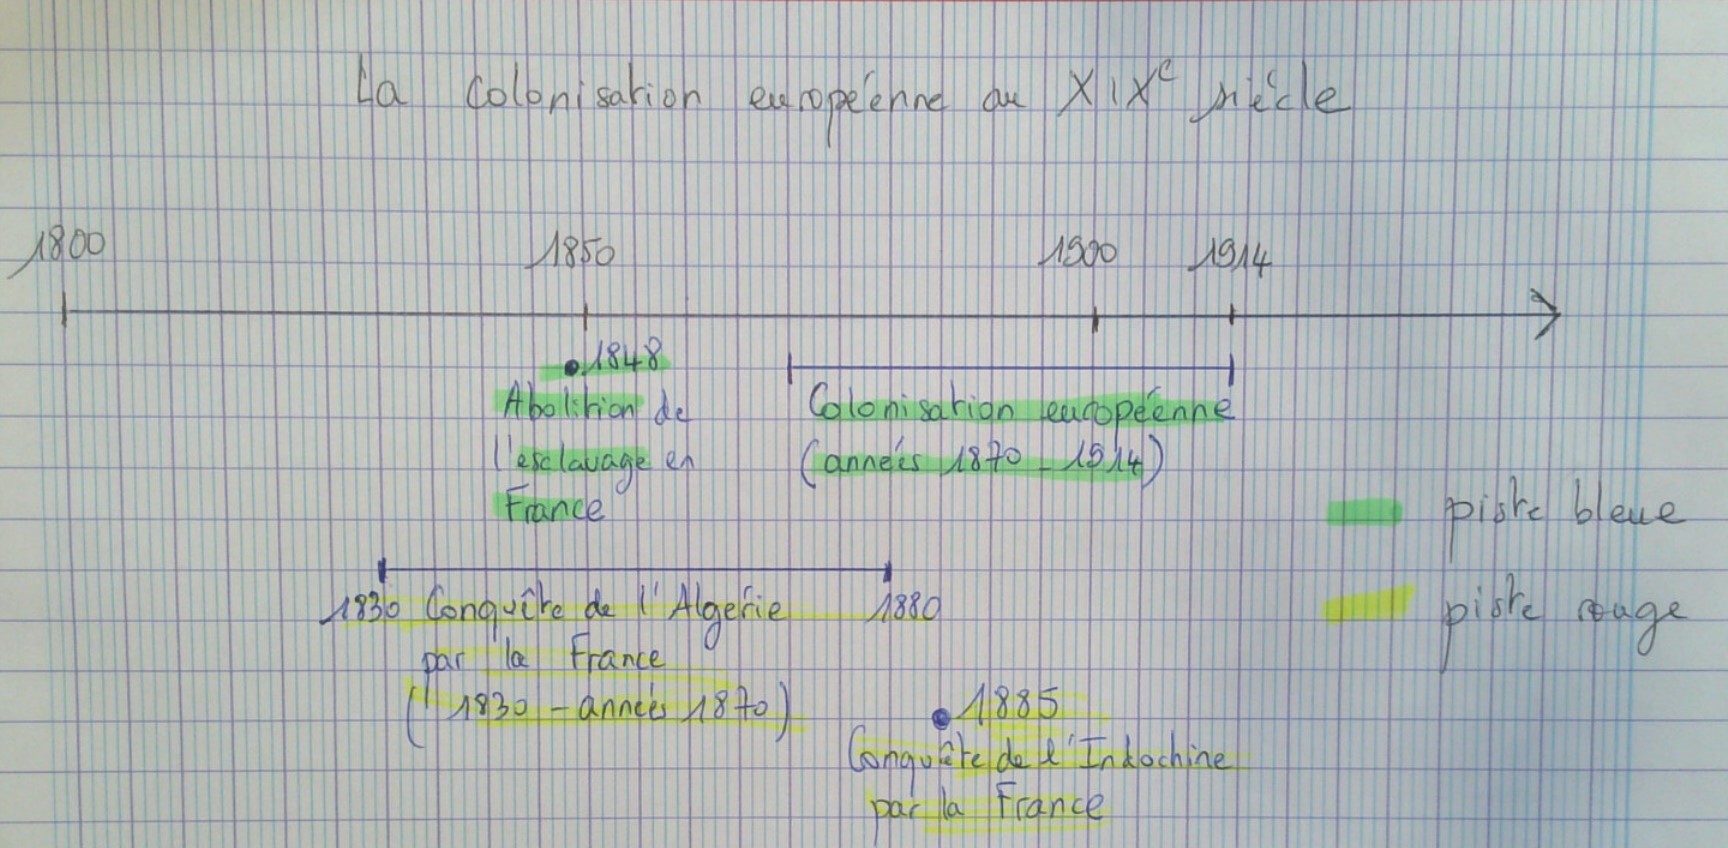 La colonisation européenne au XIXe siècle
1800 1850 1900 1914
1848
Abolition de
l'esclavage en
France
Colonisation européenne
(années 1870 - 1914)
piste bleue
1830 Conquête de l'Algérie 1880
par la France
(1830 - années 1870)
piste rouge
1885
Conquête de l'Indochine
par la France